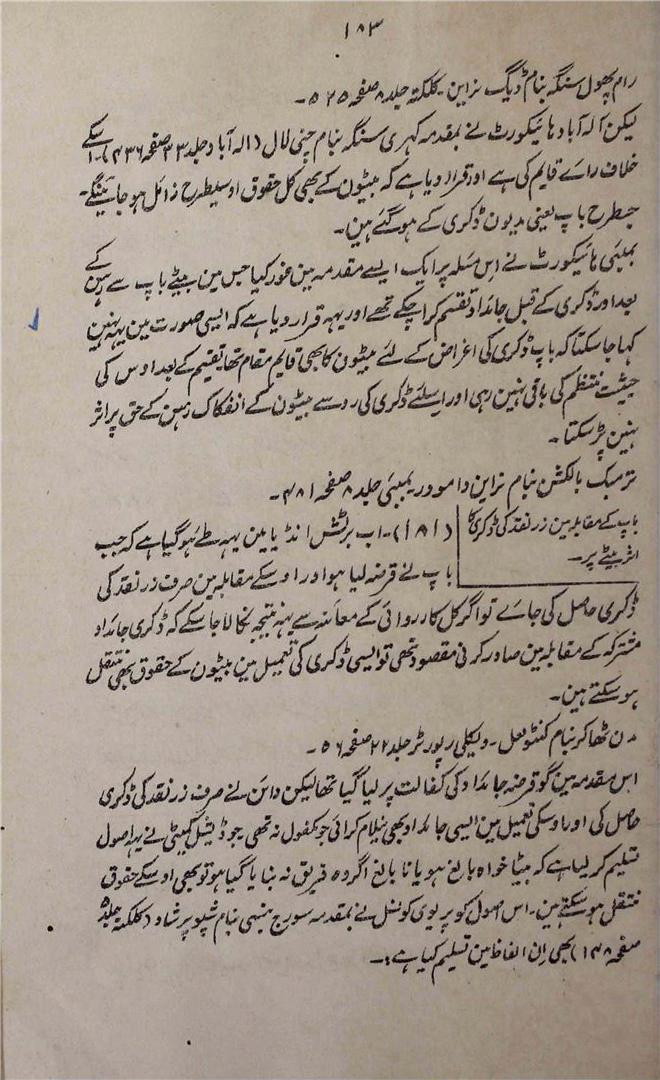 ۱۸۳
رام پھول سنگہ بنام دیگ نراین ۔ کلکتہ جلد ۸ صفحہ ۵۲۵ ۔
لیکن آلہ آباد ہائیکورٹ نے بمقدمہ کہری سنگہ بنام چنی لال (الہ آباد جلد ۳۳ صفحہ ۴۳۶) اسکے
خلاف راے قایم کی ہے اور قرار دیا ہے کہ بیٹون کے بھی کل حقوق اوسیطرح زائل ہو جائینگے۔
جسطرح باپ یعنی مدیون ڈکری کے ہو گئے ہین۔
بمبئی ہائیکورٹ نے اس مسٔلہ پر ایک ایسے مقدمہ مین غور کیا جس مین بیٹے باپ سے رہن کے
بعد اور ڈکری کے قبل جائداد تقسیم کرا چکے تھے اور یہہ قرار دیا ہے کہ ایسی صورت مین یہہ نہین
کہا جا سکتا کہ باپ ڈکری کی اغراض کے لئے بیٹون کا بھی قایم مقام تھا تقسیم کے بعد اوس کی
حیثیت منتظم کی باقی نہین رہی اور اسلئے ڈکری کی رو سے بیٹون کے انفکاک رہن کے حق پر اثر
نہین پڑ سکتا ۔
ترمبک بالکشن بنام نراین دامودر بمبئی جلد ۸ صفحہ ۴۸۱ ۔
باپ کے مقابلہ مین زر نقد کی ڈکری کا
اثر بیٹے پر۔
(۱۸۱)۔ اب برٹش انڈیا مین یہہ طے ہو گیا ہے کہ جب
باپ نے قرضہ لیا ہو اور اوسکے مقابلہ مین صرف زر نقد کی
ڈکری حاصل کی جاے تو اگر کل کارروائی کے معائنہ سے یہہ نتیجہ نکالا جا سکے کہ ڈکری جائداد
مشترکہ کے مقابلہ مین صادر کرنی مقصود تھی تو ایسی ڈکری کی تعمیل مین بیٹون کے حقوق بھی منتقل
ہو سکتے ہین۔
دن ٹھاکر بنام کنٹولعل ۔ ویکلی رپورٹر جلد ۲۲ صفحہ ۵۶ ۔
اس مقدمہ مین گو قرضہ جائداد کی کفالت پر لیا گیا تھا لیکن دائن نے صرف زر نقد کی ڈکری
حاصل کی اور اوسکی تعمیل مین ایسی جائداد بھی نیلام کرائی جو مکفول نہ تھی جوڈیشل کمیٹی نے یہہ اصول
تسلیم کر لیا ہے کہ بیٹا خواہ بالغ ہو یا نا بالغ اگر وہ فریق نہ بنایا گیا ہو تو بھی اوسکے حقوق
منتقل ہو سکتے ہین۔ اس اصول کو پریوی کونسل نے بمقدمہ سورج بنسی بنام شیو پرشاد (کلکتہ جلد ۵
صفحہ ۱۴۸) بھی اِن الفاظ مین تسلیم کیا ہے :۔